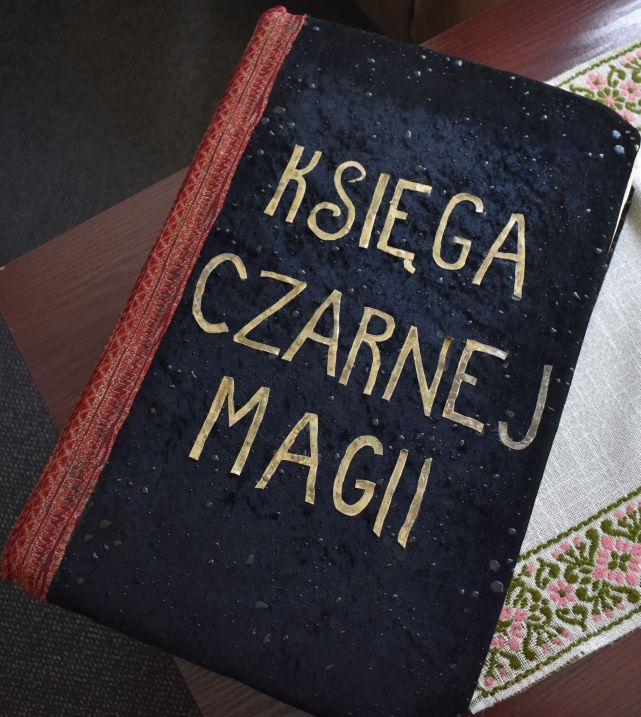 KSIĘGA
CZARNEJ
MAGII